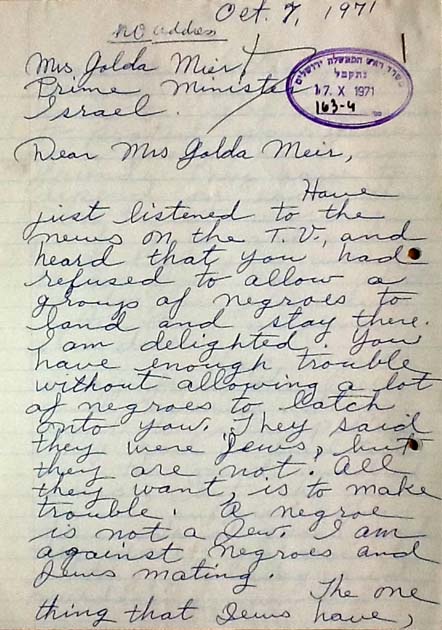 Oct. 7, 1971
no address
Mrs Golda Meir
Prime Minister
Israel.
משרד ראש הממשלה ירושלים
נתקבל
17. X 1971
163-4
Dear Mrs Golda Meir,
Have
just listened to the
news on the T.V., and
heard that you had
refused to allow a
group of negroes to
land and stay there.
I am delighted. You
have enough trouble
without allowing a lot
of negroes to latch
onto you. They said
they were Jews, but
they are not. All
they want, is to make
trouble. A negroe
is not a Jew. I am
against Negroes and
Jews mating.
The one
thing that Jews have,